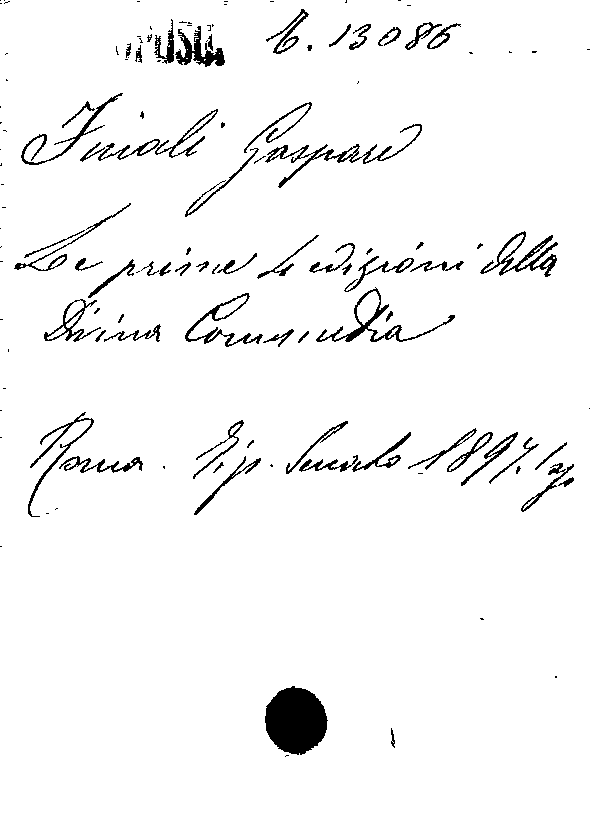 OPUSC. B. 13086
Finali Gaspare
Le prime 4 edizioni della
Divina Commedia
Roma. Tip. Senato 1897.